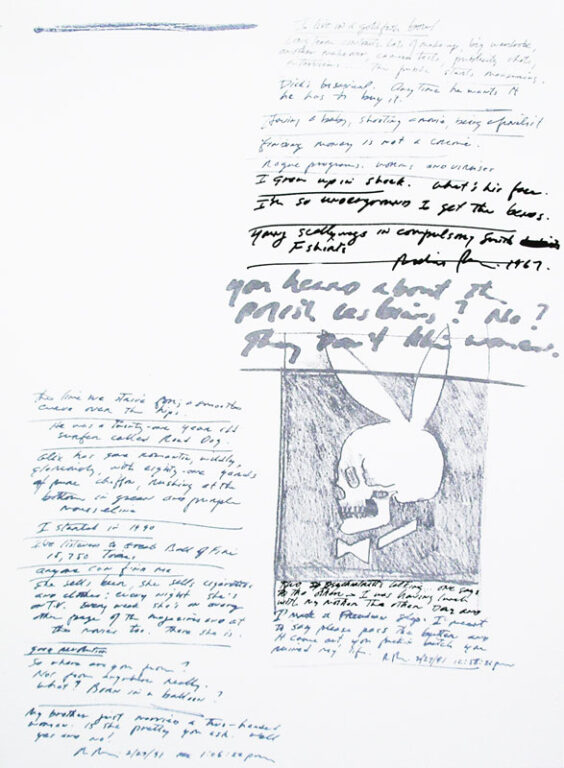 To live in a goldfish bowl
another makeover, camera tests, publicity shots,
interviews... The public starts mourning.
Dick's bisexual. Anytime he wants it
he has to buy it.
Having a baby, shooting a movie, being a
money is not a crime.
Rogue programs. worms and viruses
I grew up in shock. What's his face.
I'm so underground I get the bends.
Young scallywags in compulsory Smith
F shirts
1967.
you heard about the
polish lesbians? No?
They don't like women.
This line we starve for, a smooth
curve over the hips.
He was a twenty-one year old
surfer called Road Dog.
has gone romantic, wildly,
gloriously, with eighty-one yards
of pure chiffon, rushing at the
bottom in green and purple
mousseline
I started in 1990
I've listened to Great Balls of Fire
15,750 times
anyone can find me
She sells beer, she sells cigarettes
and clothes: every night she's
on TV. Every week she's on every
other page of the magazines and at
the movies too. There she is.
So where are you from?
Not from anywhere really.
What? Born in a balloon?
My brother just married a two-headed
woman. Is she pretty you ask. Well
yes and no!
Two psychiatrists talking. one says
to the other - I was having lunch
with my mother the other Day and
I made a Freudian slip. I meant
to say please pass the butter and
it came out you fuckin bitch you
ruined my life.